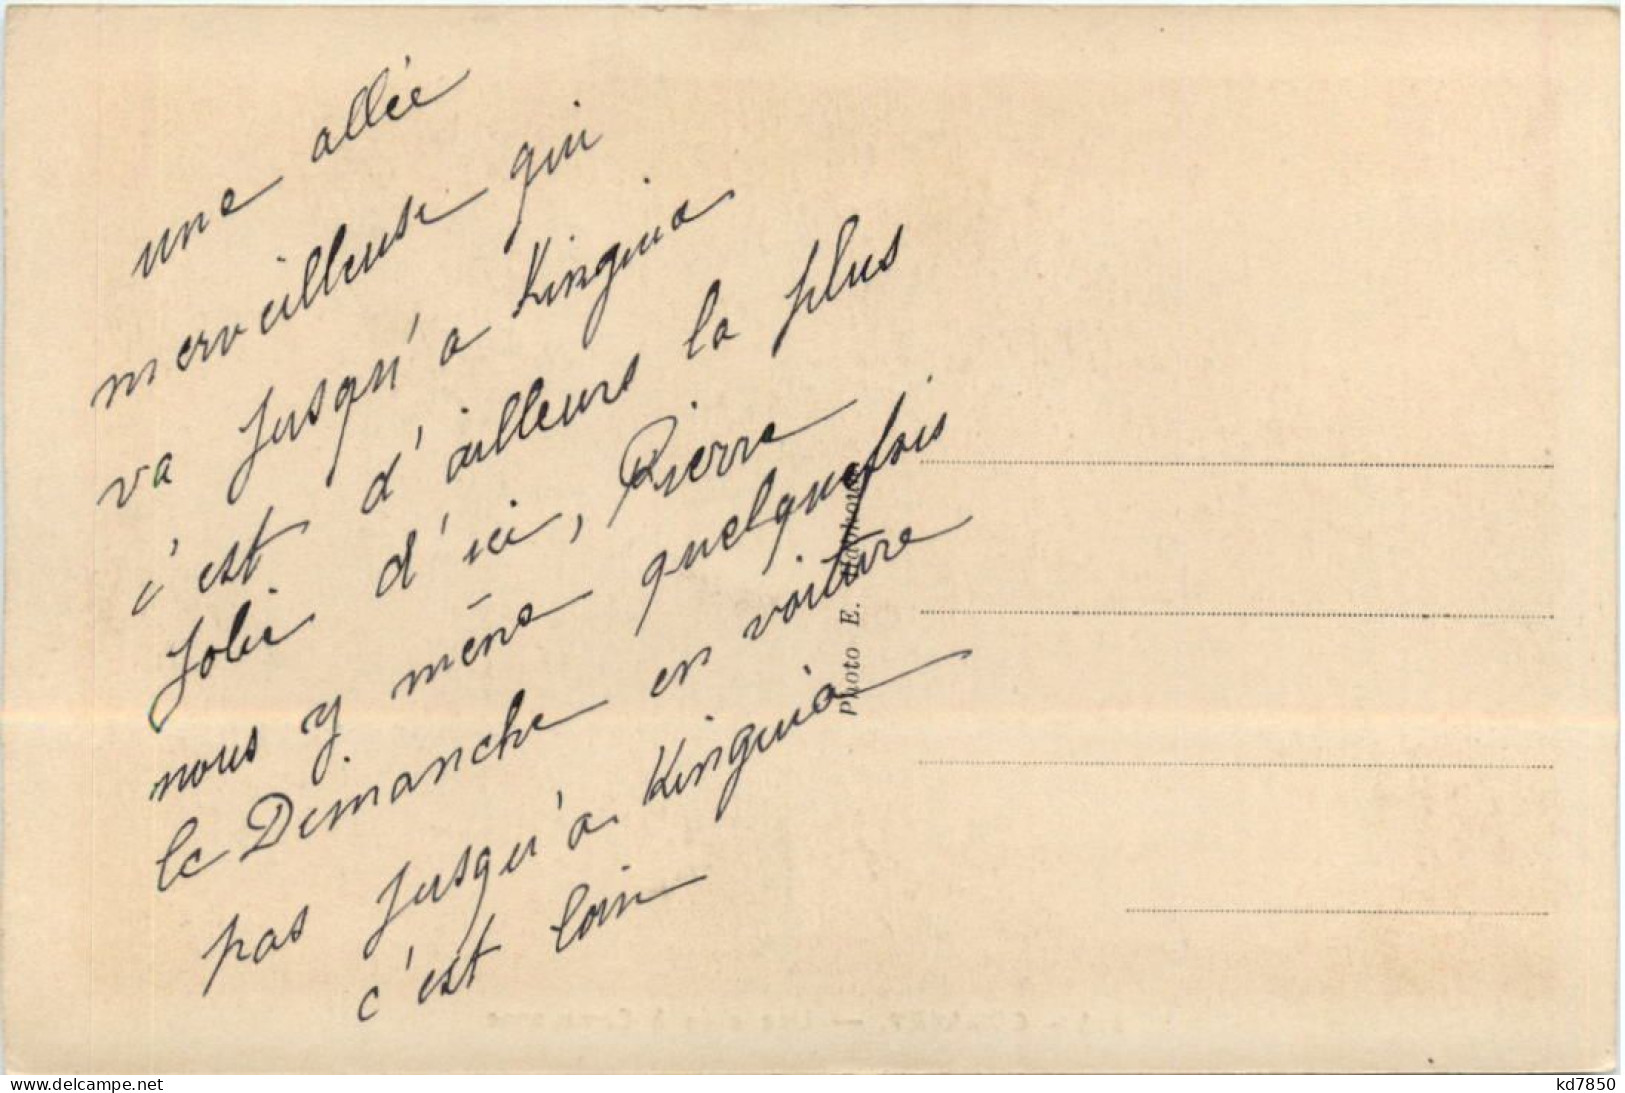 une allée
merveilleuse qui
va jusqu'a Kinguia
c'est d'ailleurs la plus
Jolie d'ici, Pierre
nous y mène quelquefois
le Dimanche en voiture
pas jusqu'a Kinguia
c'est loin
Photo E.
www.delcampe.net
kd7850